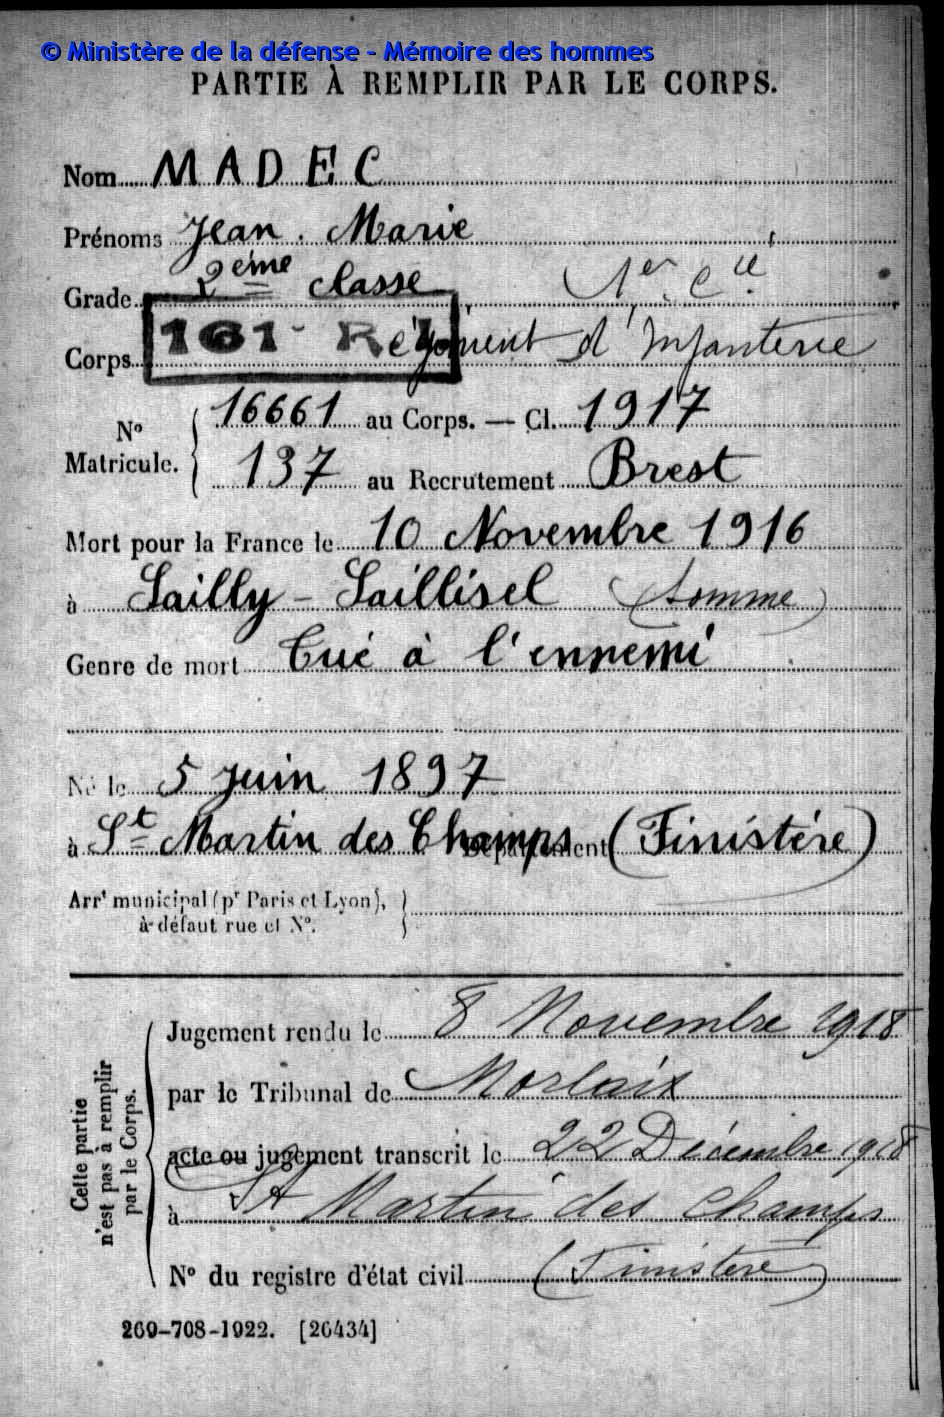 © Ministère de la défense - Mémoire des hommes
PARTIE À REMPLIR PAR LE CORPS.
Nom MADEC
Prénoms Jean . Marie
Grade 2ème classe 1er Cie
Corps 161e R.I. Régiment d'Infanterie
No Matricule. 16661 au Corps. — Cl. 1917
137 au Recrutement Brest
Mort pour la France le 10 Novembre 1916
à Sailly - Saillisel (Somme)
Genre de mort Tué à l'ennemi
Né le 5 Juin 1897
à St Martin des Champs Département (Finistère)
Arrt municipal (pr Paris et Lyon),
à défaut rue et No.
Cette partie n'est pas à remplir par le Corps.
Jugement rendu le 8 Novembre 1918
par le Tribunal de Morlaix
acte ou jugement transcrit le 22 Décembre 1918
à St Martin des Champs
No du registre d'état civil (Finistère)
269-708-1922. [26434]